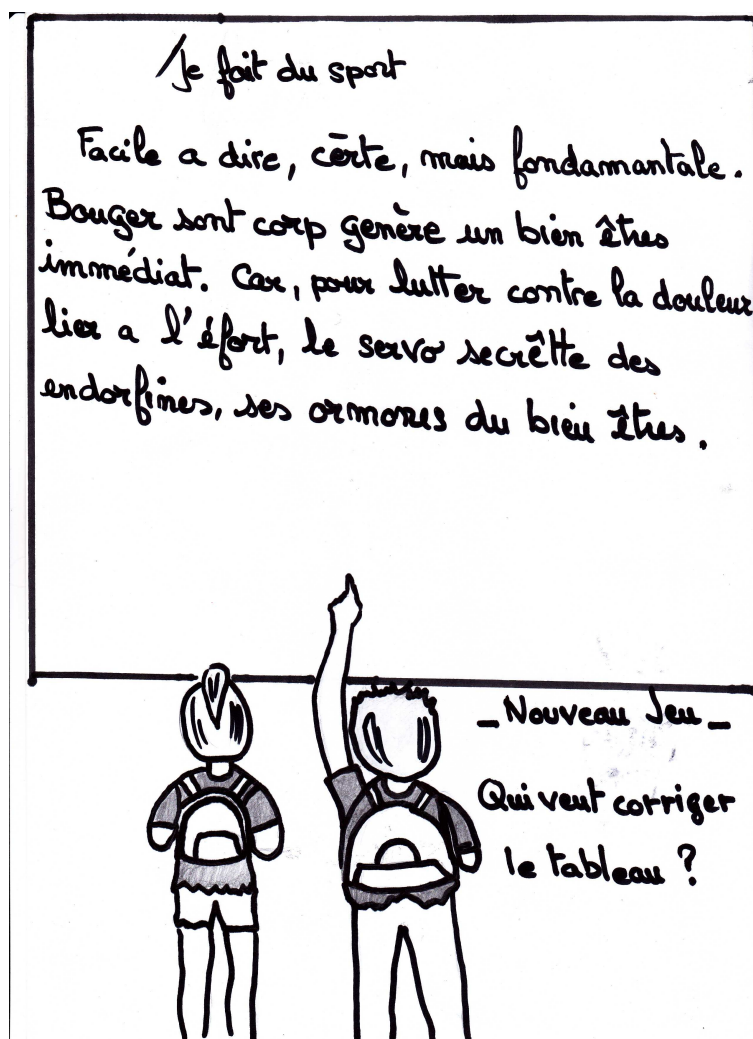 Je fait du sport
Facile a dire, cērte, mais fondamantale.
Bouger sont corp genère un bien êtres
immédiat. Car, pour lutter contre la douleur
lier a l'éfort, le servo secrêtte des
endorfines, ses ormones du bien êtres.
_ Nouveau Jeu _
Qui veut corriger
le tableau ?